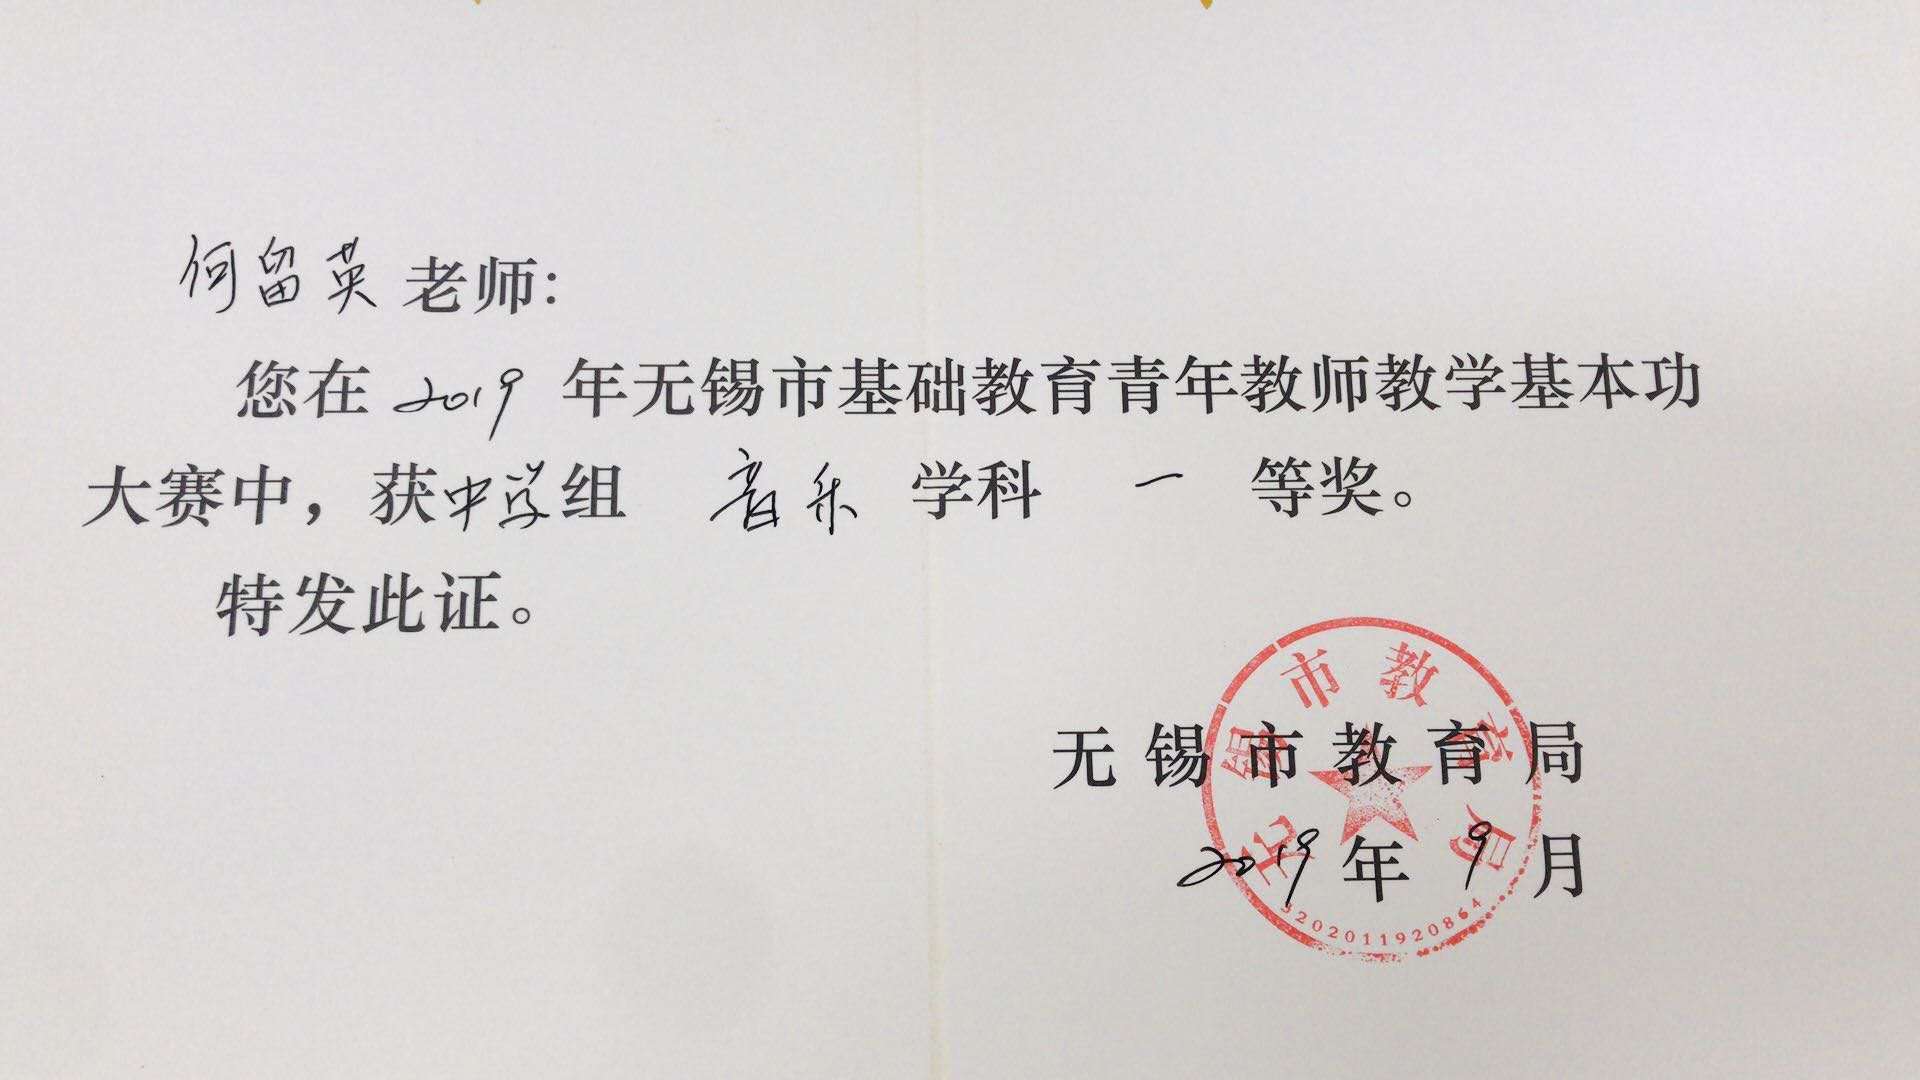 何留英老师:
您在 2019 年无锡市基础教育青年教师教学基本功
大赛中，获中学组 音乐 学科 一 等奖。
特发此证。
无锡市教育局
2019年9月
无锡市教育局
3202011920864